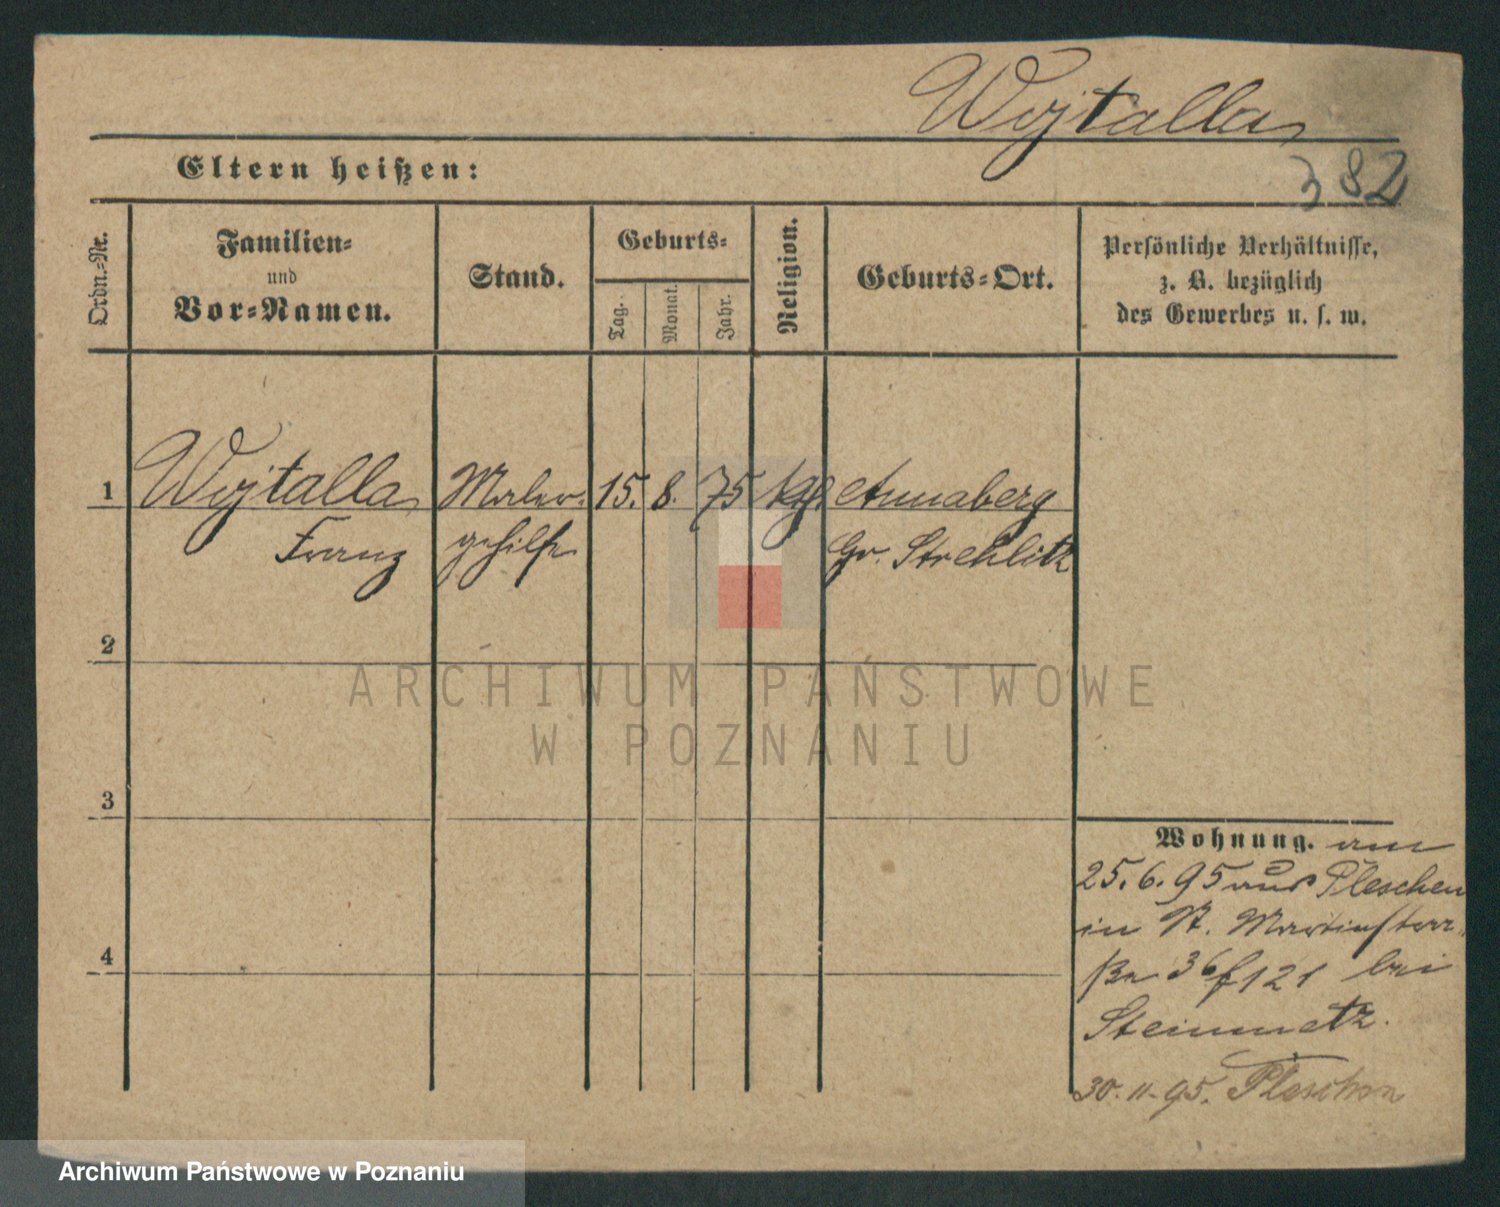 Wojtalla
382
Eltern heißen:
Ordn.-Nr.
Familien-
und
Vor-Namen.
Stand.
Geburts-
Tag.
Monat.
Jahr.
Religion.
Geburts-Ort.
Persönliche Verhältnisse,
z. B. bezüglich
des Gewerbes u. s. w.
1 Wojtalla Maler- 15. 8. 75 kgl. Annaberg
Franz gehilfe Gr. Strehlitz
2
3
4
Wohnung. am
25.6.95 aus Pleschen
in St. Martinstra-
ße 36 f 121 bei
Steinmetz.
30.11.95. Pleschen
ARCHIWUM PAŃSTWOWE
W POZNANIU
Archiwum Państwowe w Poznaniu